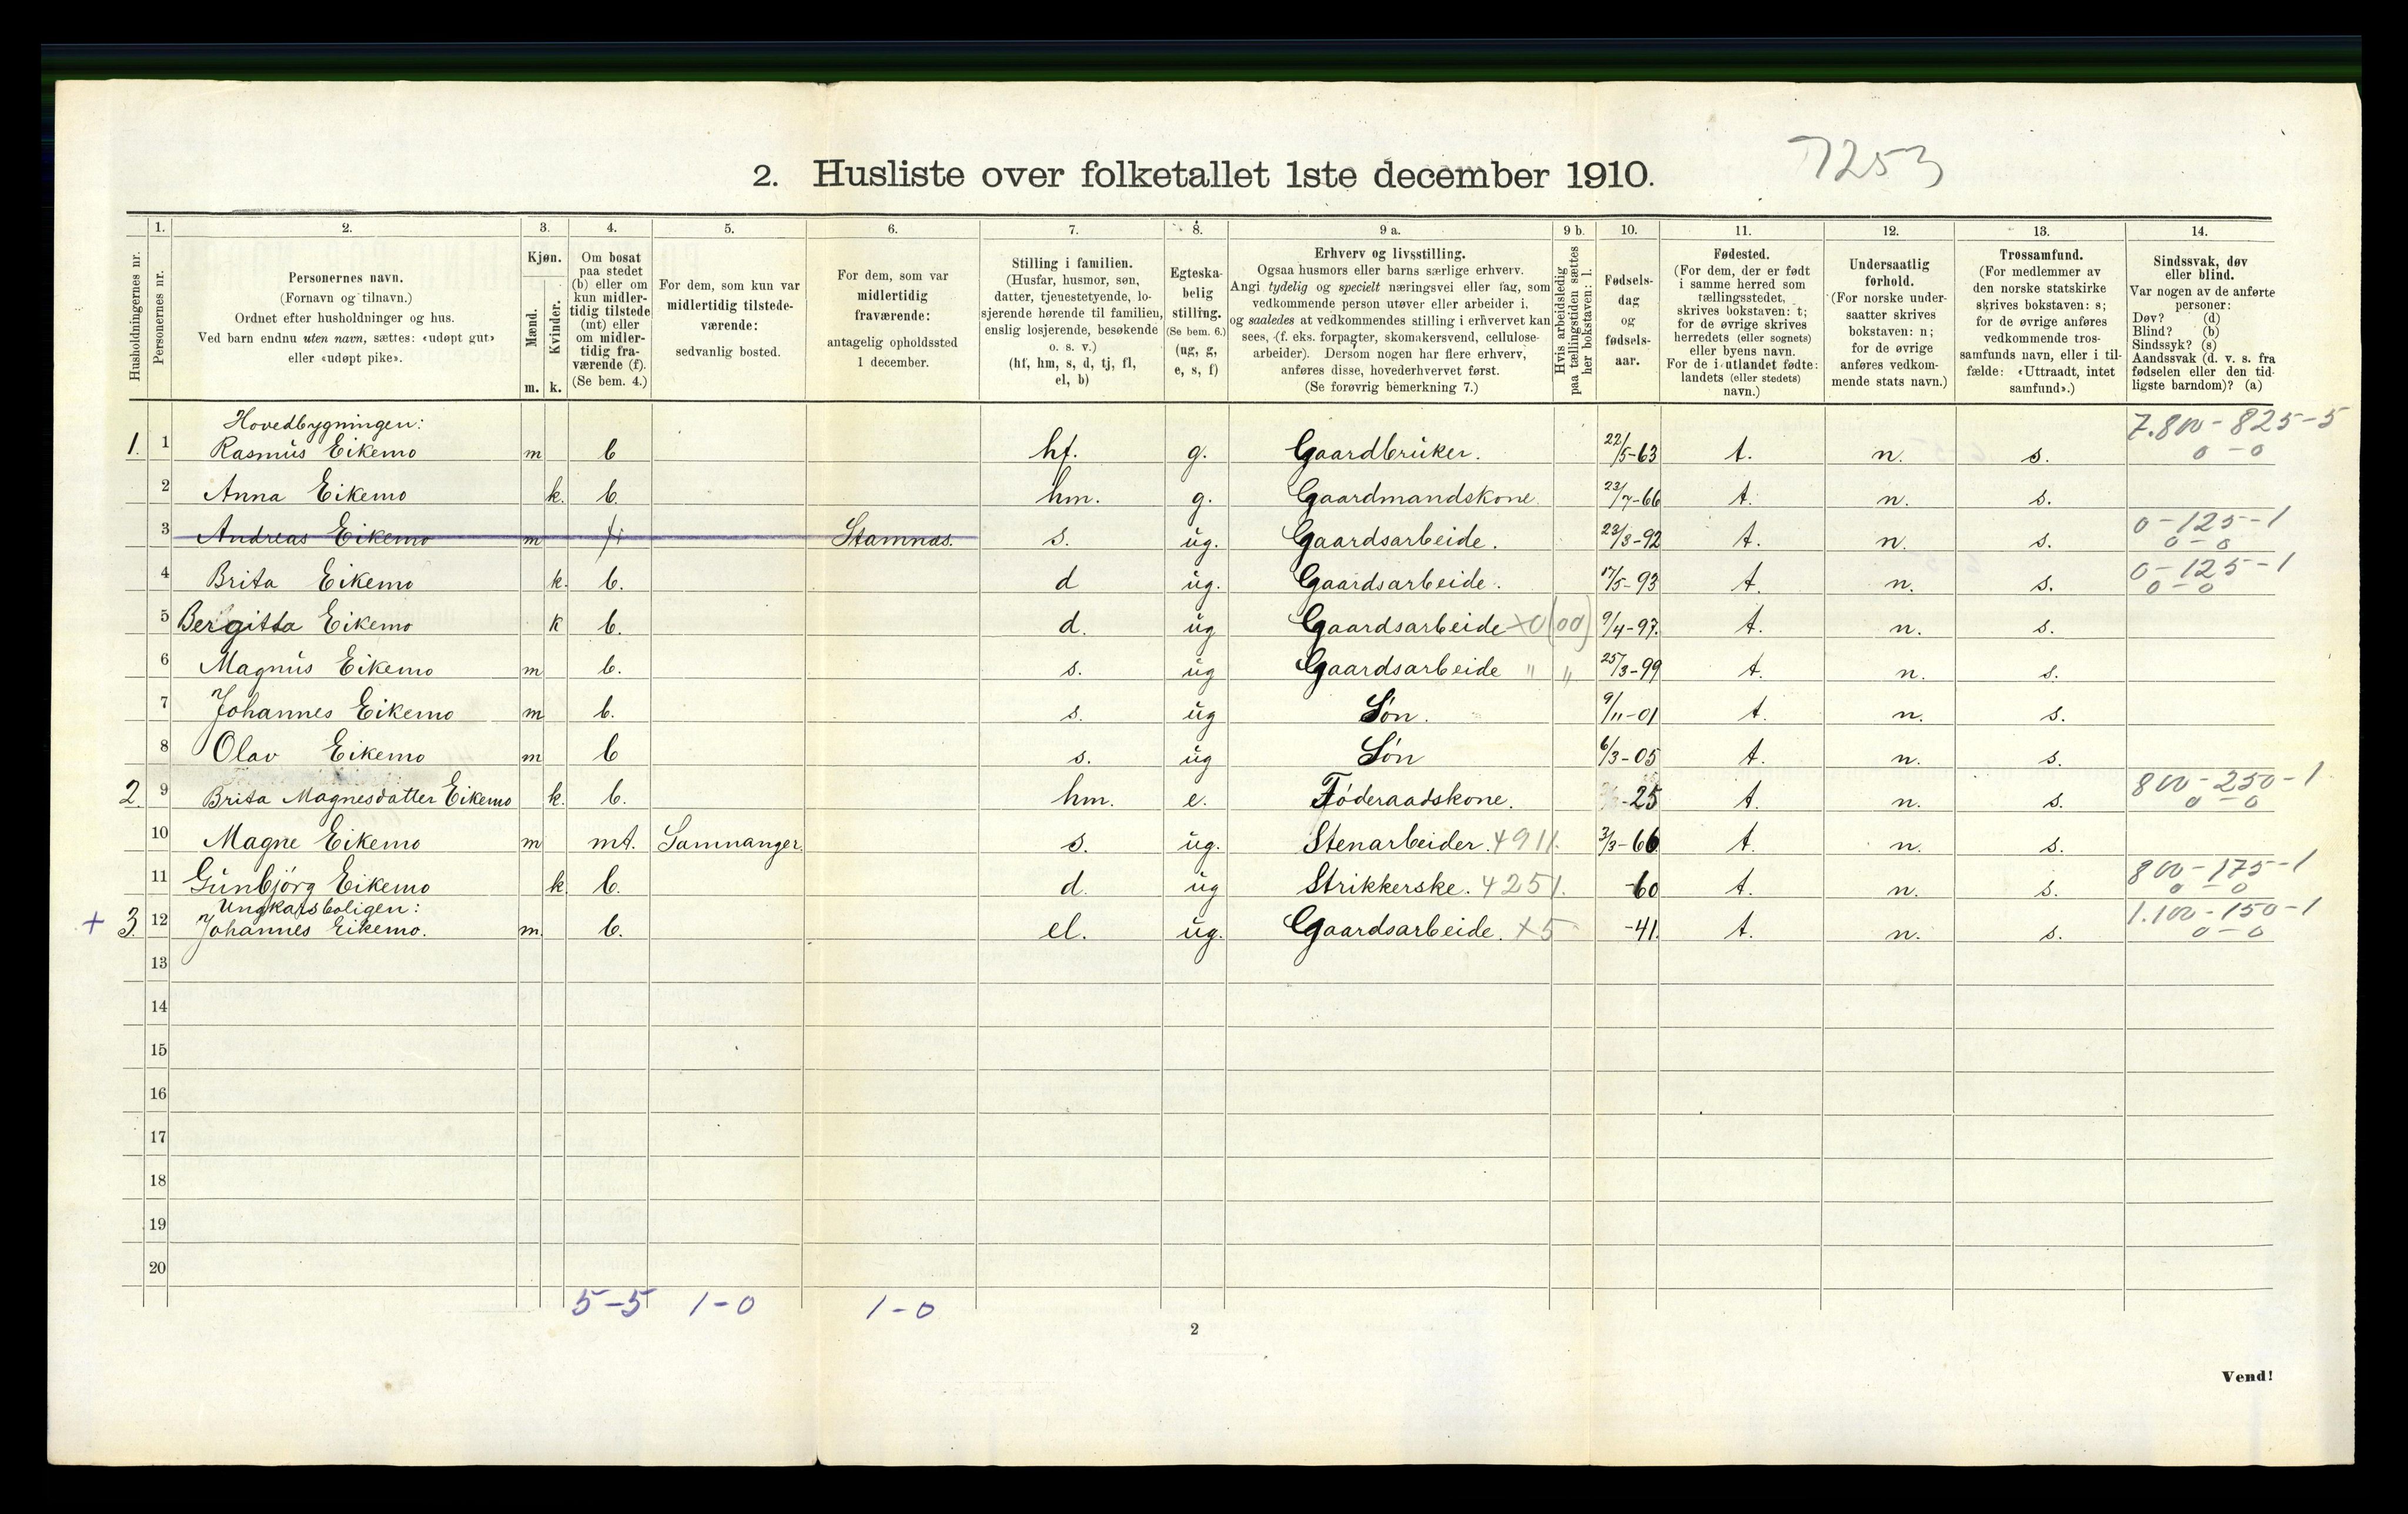 7253
2. Husliste over folketallet 1ste december 1910.
Husholdningernes nr.
1.
Personernes nr.
2.
Personernes navn.
(Fornavn og tilnavn.)
Ordnet efter husholdninger og hus.
Ved barn endnu uten navn, sættes: «udøpt gut»
eller «udøpt pike».
3.
Kjøn.
Mænd.
Kvinder.
m. k.
4.
Om bosat
paa stedet
(b) eller om
kun midler-
tidig tilstede
(mt) eller
om midler-
tidig fra-
værende (f).
(Se bem. 4.)
5.
For dem, som kun var
midlertidig tilstede-
værende:
sedvanlig bosted.
6.
For dem, som var
midlertidig
fraværende:
antagelig opholdssted
1 december.
7.
Stilling i familien.
(Husfar, husmor, søn,
datter, tjenestetyende, lo-
sjerende hørende til familien,
enslig losjerende, besøkende
o. s. v.)
(hf, hm, s, d, tj, fl,
el, b)
8.
Egteska-
belig
stilling.
(Se bem. 6.)
(ug, g,
e, s, f)
9 a.
Erhverv og livsstilling.
Ogsaa husmors eller barns særlige erhverv.
Angi tydelig og specielt næringsvei eller fag, som
vedkommende person utøver eller arbeider i,
og saaledes at vedkommendes stilling i erhvervet kan
sees, (f. eks. forpagter, skomakersvend, cellulose-
arbeider). Dersom nogen har flere erhverv,
anføres disse, hovederhvervet først.
(Se forøvrig bemerkning 7.)
9 b.
Hvis arbeidsledig
paa tællingstiden sættes
her bokstaven: l.
10.
Fødsels-
dag
og
fødsels-
aar.
11.
Fødested.
(For dem, der er født
i samme herred som
tællingsstedet,
skrives bokstaven: t;
for de øvrige skrives
herredets (eller sognets)
eller byens navn.
For de i utlandet fødte:
landets (eller stedets)
navn.)
12.
Undersaatlig
forhold.
(For norske under-
saatter skrives
bokstaven: n;
for de øvrige
anføres vedkom-
mende stats navn.)
13.
Trossamfund.
(For medlemmer av
den norske statskirke
skrives bokstaven: s;
for de øvrige anføres
vedkommende tros-
samfunds navn, eller i til-
fælde: «Uttraadt, intet
samfund».)
14.
Sindssvak, døv
eller blind.
Var nogen av de anførte
personer:
Døv? (d)
Blind? (b)
Sindssyk? (s)
Aandssvak (d. v. s. fra
fødselen eller den tid-
ligste barndom)? (a)
Hovedbygningen:
1. 1 Rasmus Eikemo m b hf. g. Gaardbruker. 22/5-63 t. n. s. 7.800-825-5 0-0
2 Anna Eikemo k. b. hm. g. Gaardmandskone. 23/7-66 t. n. s.
3 Andreas Eikemo m Stamnæs. s. ug. Gaardsarbeide. 23/8-92 t. n. s. 0-125-1 0-0
4 Brita Eikemo k. b. d ug. Gaardsarbeide. 17/5-93 t. n. s. 0-125-1 0-0
5 Bergitta Eikemo k b. d. ug Gaardsarbeide x0(00) 9/4-97. t. n. s.
6 Magnus Eikemo m b. s. ug Gaardsarbeide " " 25/3-99 t. n. s.
7 Johannes Eikemo m b. s. ug Søn. 9/11-01 t. n. s.
8 Olav Eikemo m b s. ug Søn 6/3-05 t. n. s.
2. 9 Brita Magnesdatter Eikemo k. b. hm. e. Føderaadskone. -25 t. n. s. 800-250-1 0-0
10 Magne Eikemo m mt. Samnanger. s. ug. Stenarbeider. 4911. 3/3-66 t. n. s.
11 Gunbjörg Eikemo k. b. d. ug Strikkerske. 4251. -60 t. n. s. 800-175-1 0-0
Ungkarsboligen:
+ 3. 12 Johannes Eikemo. m. b. el. ug. Gaardsarbeide. x5 -41. t. n. s. 1.100-150-1 0-0
13
14
15
16
17
18
19
20
5-5 1-0 1-0
2
Vend!